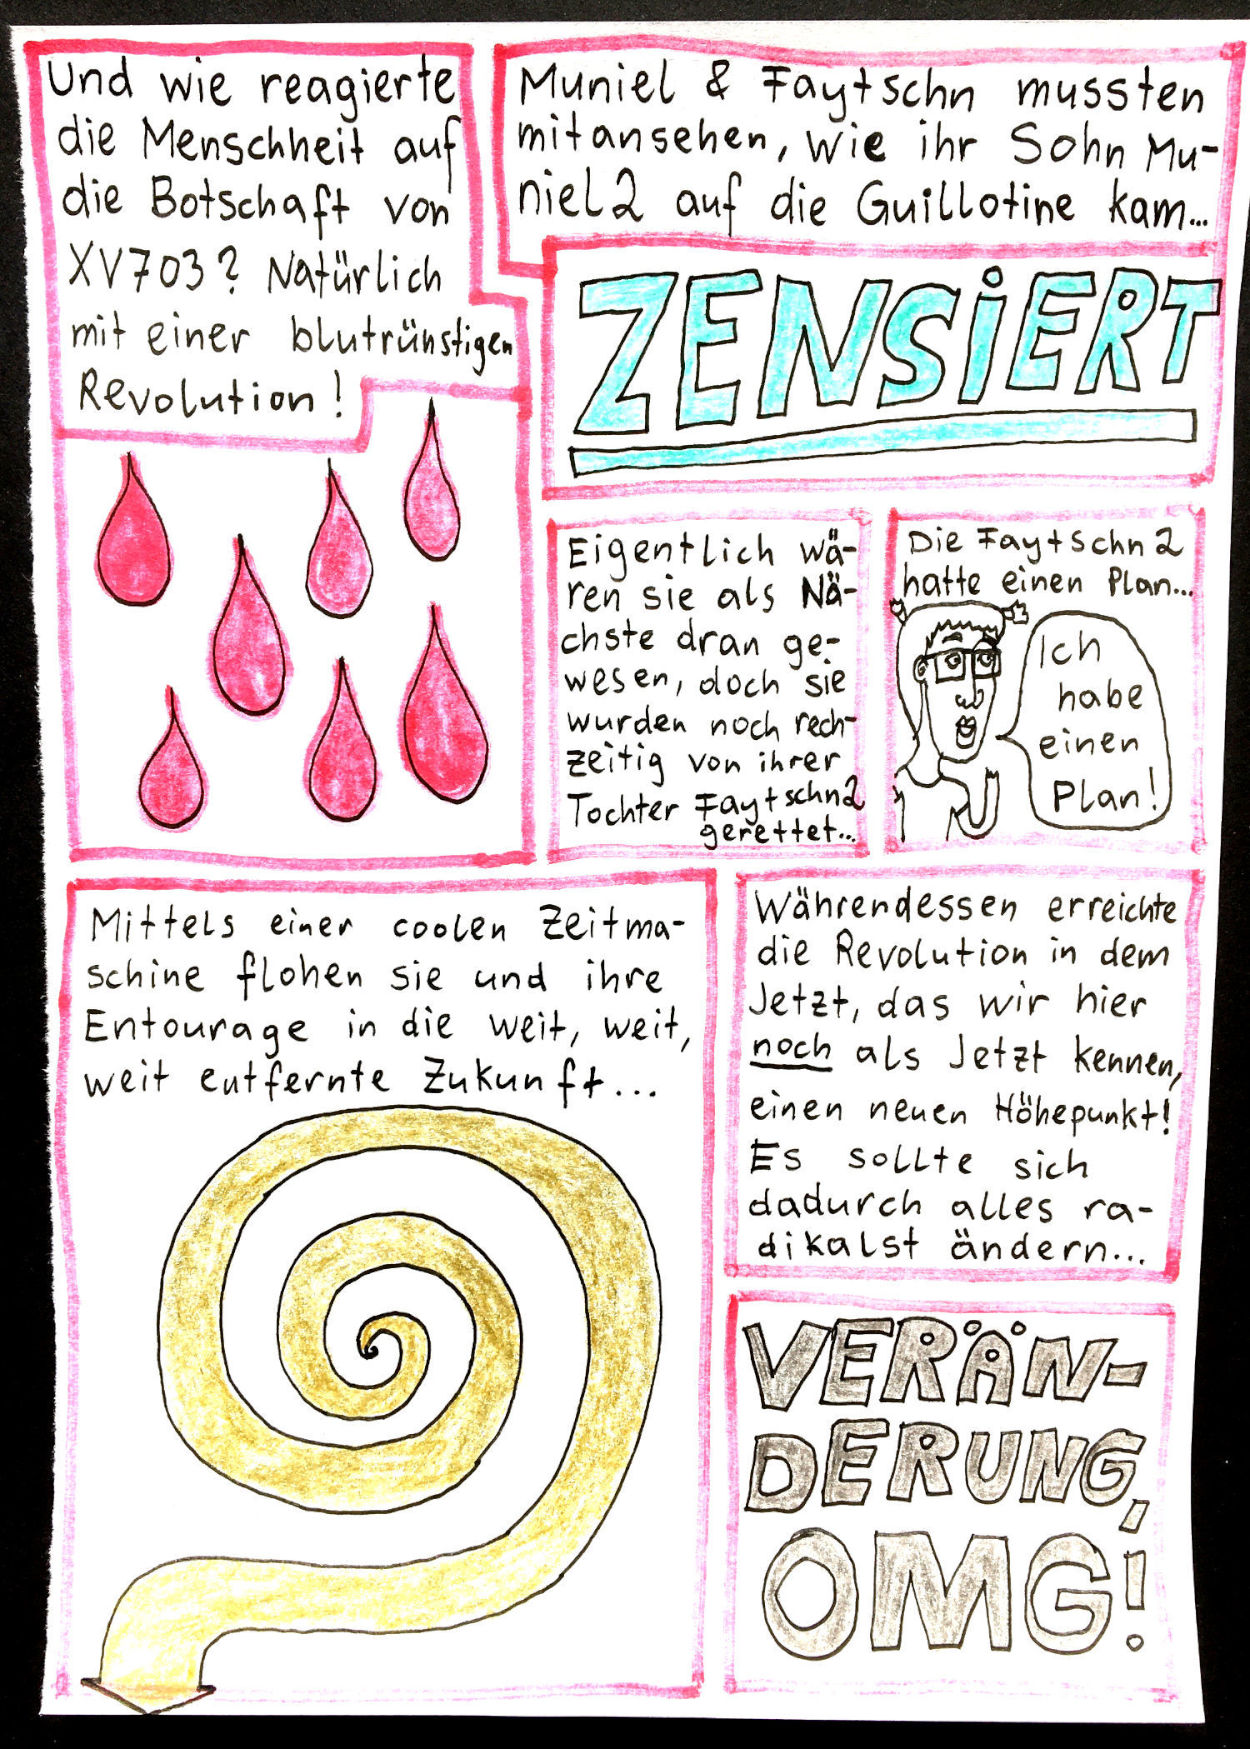 Und wie reagierte
die Menschheit auf
die Botschaft von
XV703? Natürlich
mit einer blutrünstigen
Revolution!
Muniel & Faytschn mussten
mitansehen, wie ihr Sohn Mu-
niel2 auf die Guillotine kam...
ZENSIERT
Eigentlich wä-
ren sie als Nä-
chste dran ge-
wesen, doch sie
wurden noch rech-
zeitig von ihrer
Tochter Faytschn2
gerettet...
Die Faytschn2
hatte einen Plan...
Ich
habe
einen
Plan!
Mittels einer coolen Zeitma-
schine flohen sie und ihre
Entourage in die weit, weit,
weit entfernte Zukunft...
Währendessen erreichte
die Revolution in dem
Jetzt, das wir hier
noch als Jetzt kennen,
einen neuen Höhepunkt!
Es sollte sich
dadurch alles ra-
dikalst ändern...
VERÄN-
DERUNG,
OMG!